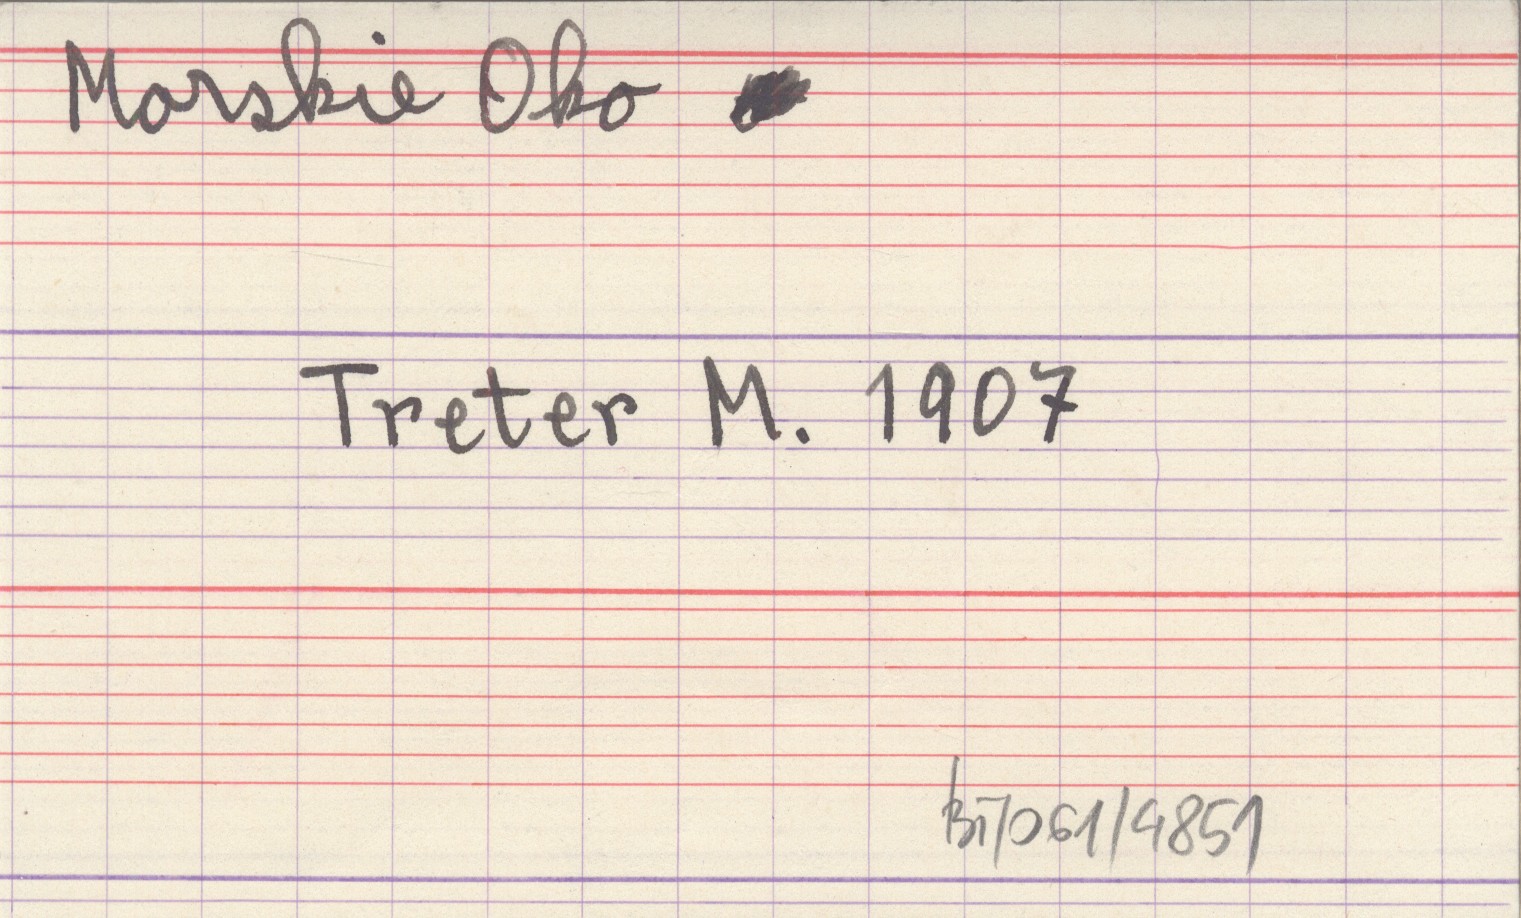 Morskie Oko
Treter M. 1907
BT/061/4851